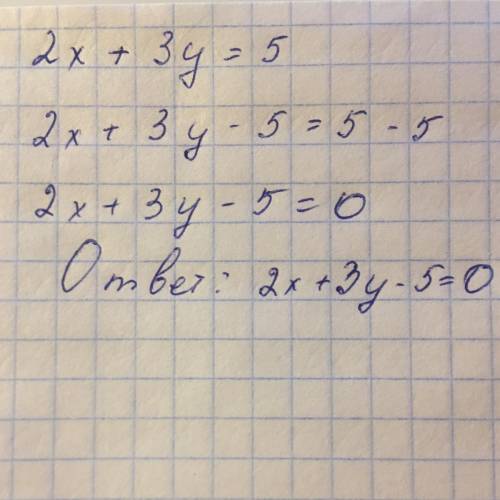 2x + 3y = 5
2x + 3y - 5 = 5 - 5
2x + 3y - 5 = 0
Ответ: 2x + 3y - 5 = 0